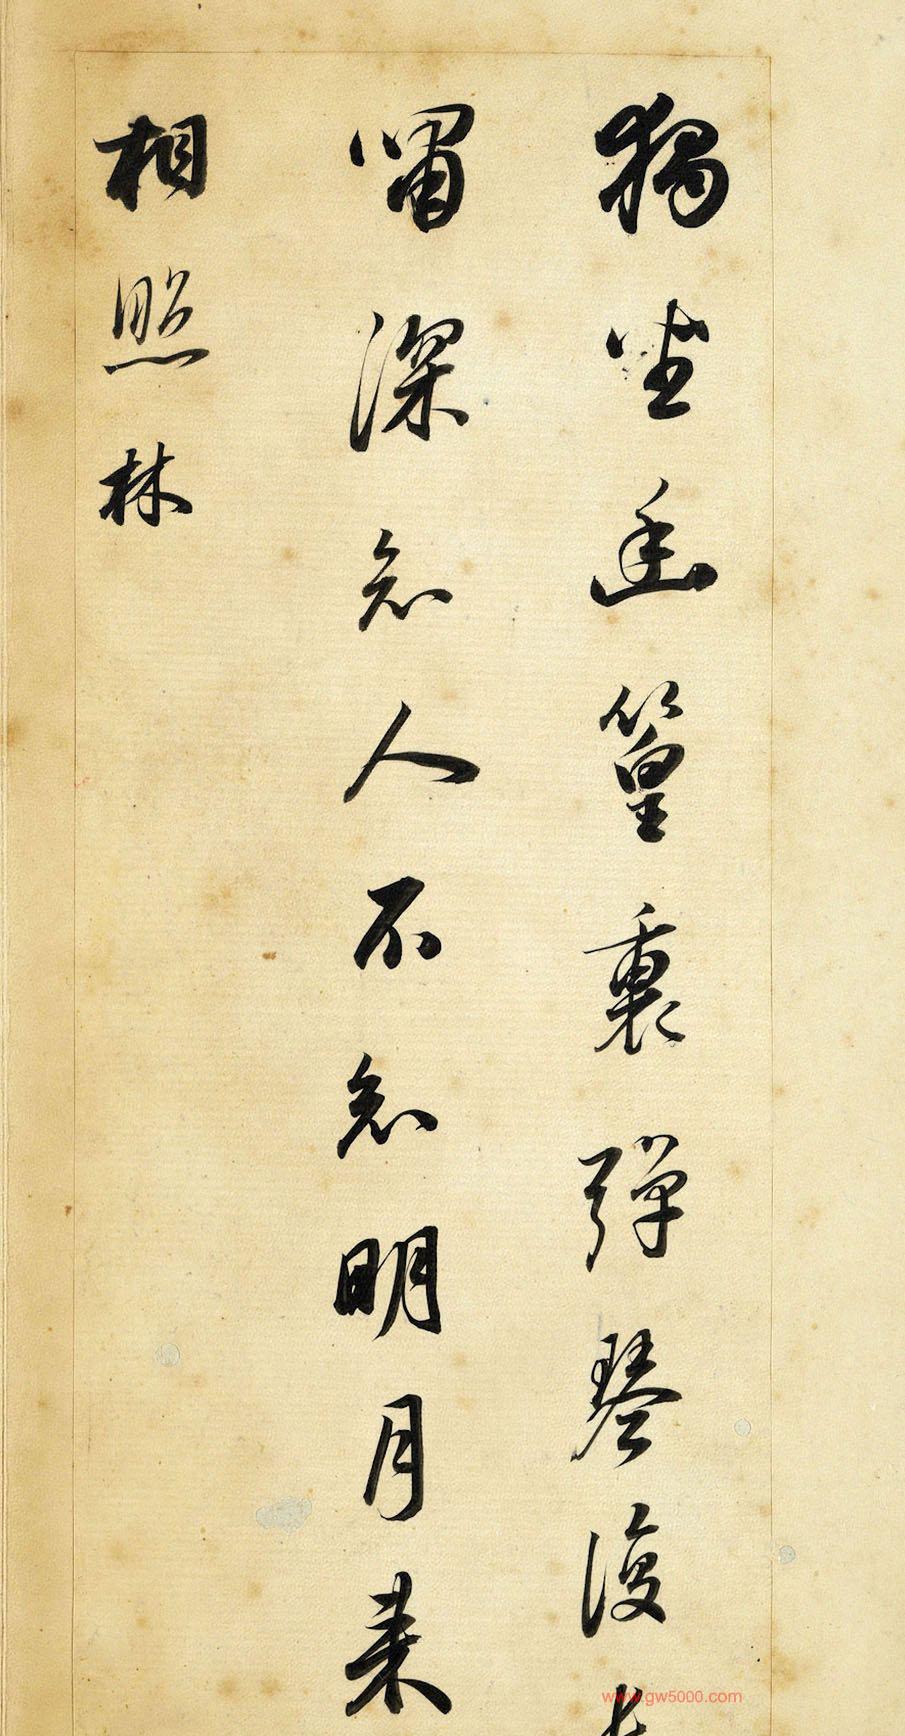 獨坐幽篁裏彈琴復
嘯深知人不知明月來
相照林
www.gw5000.com